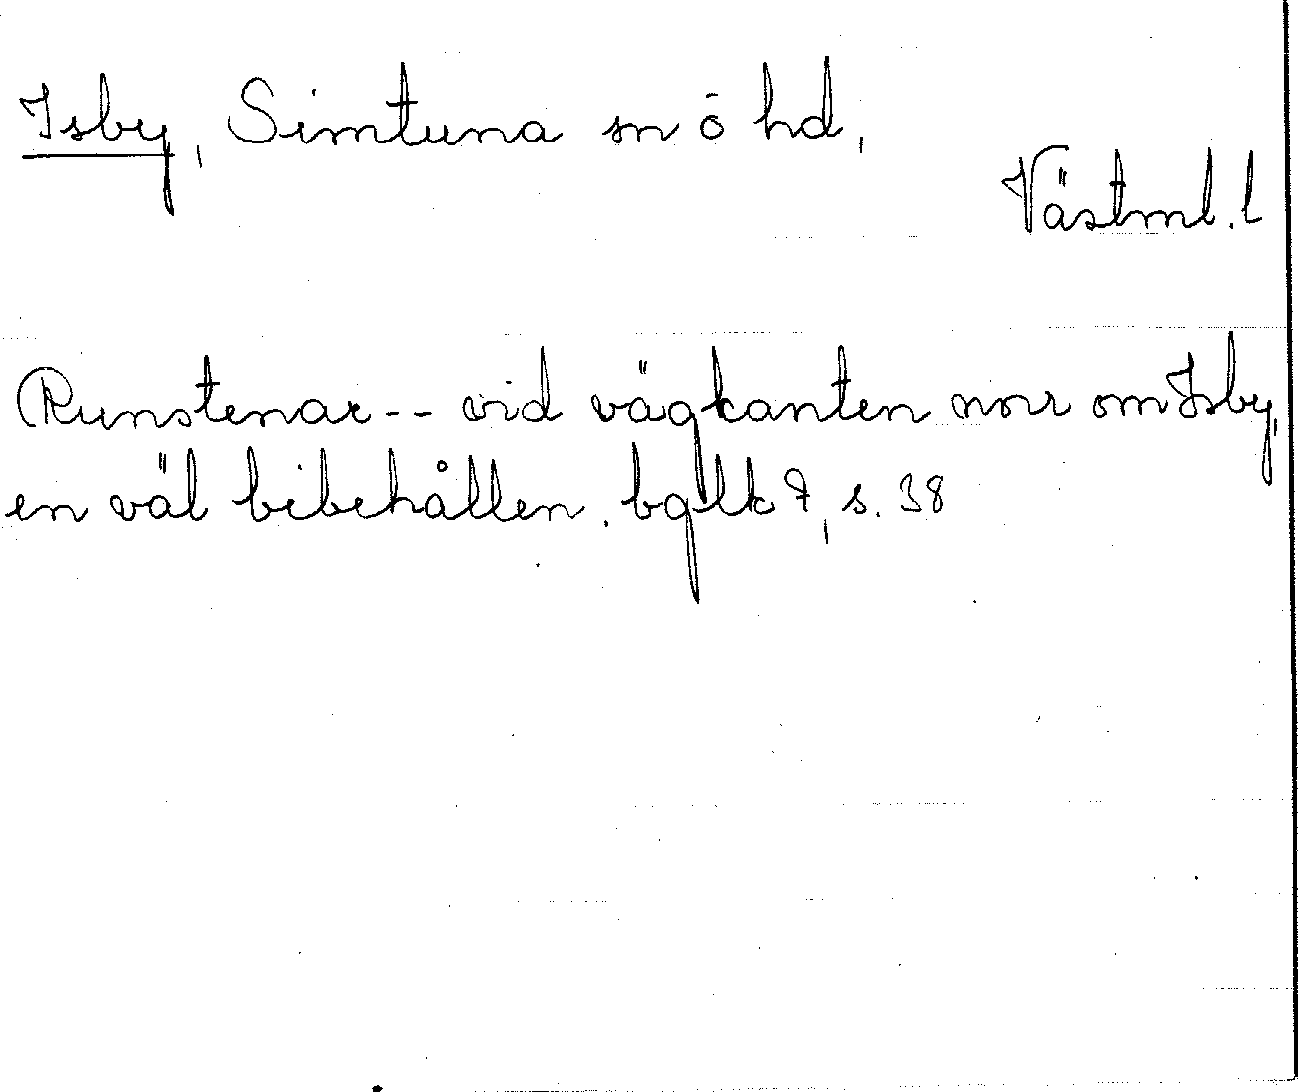 Isby, Simtuna sn ō hd,
Västml. l
Runstenar -- vid vägkanten norr om Isby,
en väl bibehållen. bglk 7, s. 38